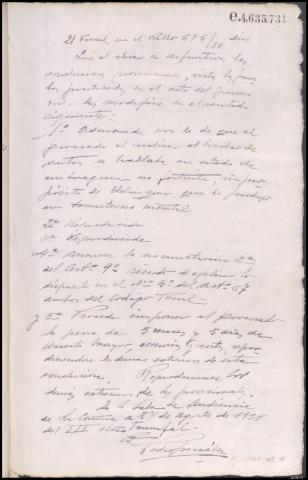 e.4.635,731
El Fiscal en el Rollo 595/38 dice
Que al elevar a definitivas las
conclusiones provisionales, vista la prue-
ba practicada en el acto del juicio
oral las modifica en el sentido
siguiente:
1ª adicionada en lo de que el
procesado al realizar el hecho de
autos se hallaba en estado de
embriaguez no fortuita, sin pro-
pósito de delinquir, que le produjo
un trastorno mental
2ª Reproducida
3ª Reproducida
4ª concurre la circunstancia 2ª
del Artº 9º siendo de aplicar lo
dispuesto en el Nº 5º del Artº 67
ambos del Código Penal
y 5ª Procede imponer al procesado
la pena de 5 meses y 5 días de
arresto mayor, accesorias y costas, repro-
duciendo los demás extremos de esta
conclusión. Reproduciendo los
demás extremos de las provisionales.
En la Sala de Audiencia
de la Coruña a 27 de Agosto de 1938
del III Año Triunfal.
Pedro González